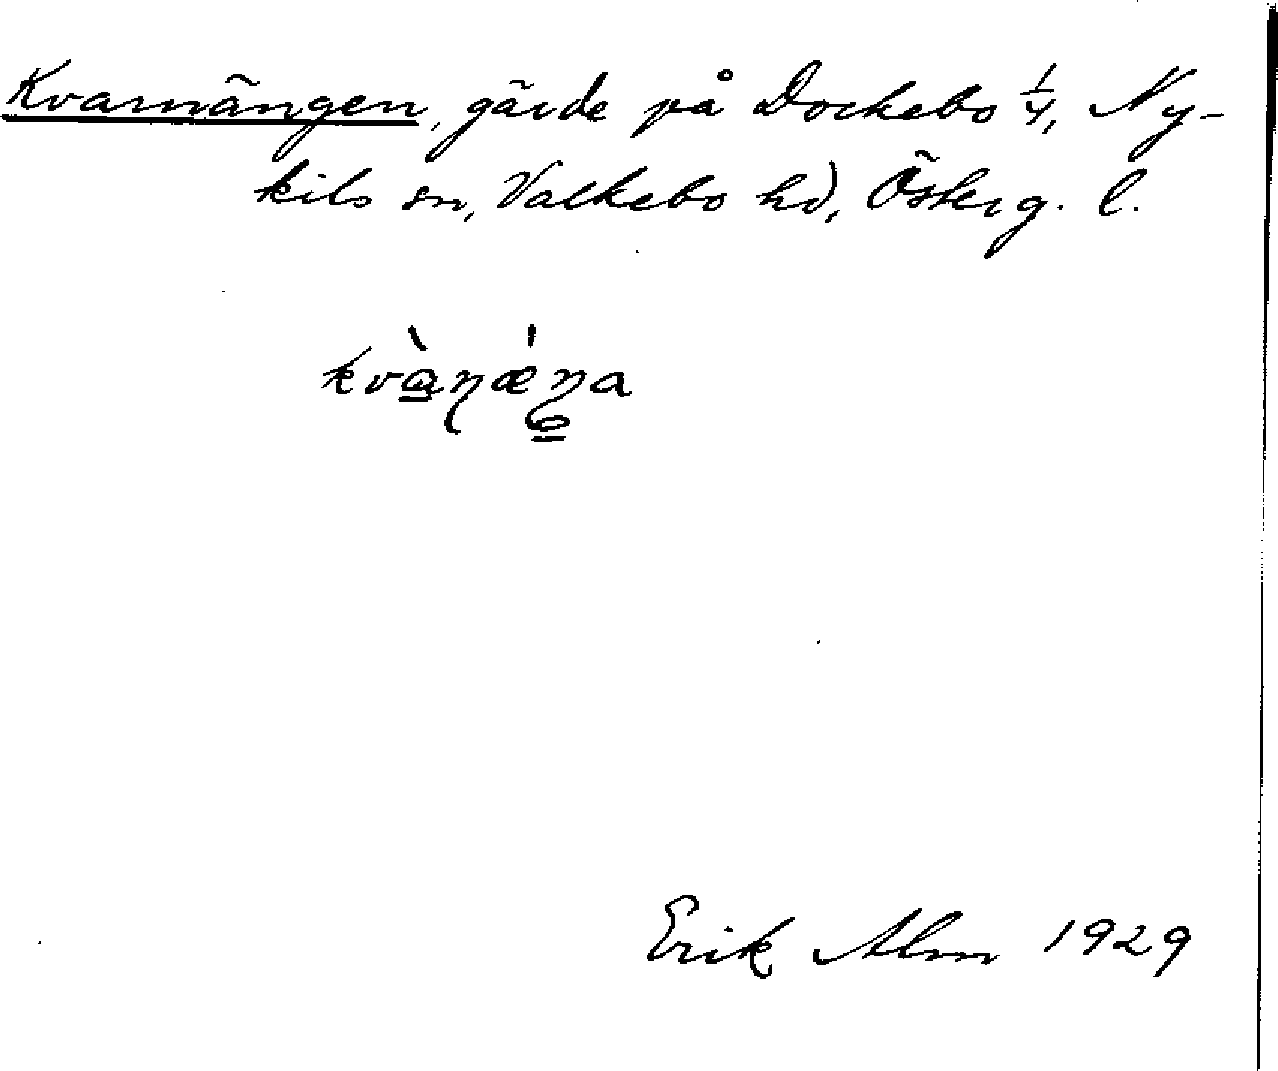 Kvarnängen, gärde på Dockebo 1/4, Ny-
kils sn, Valkebo hd, Österg. l.
kvàɳǽŋa
Erik Alm 1929